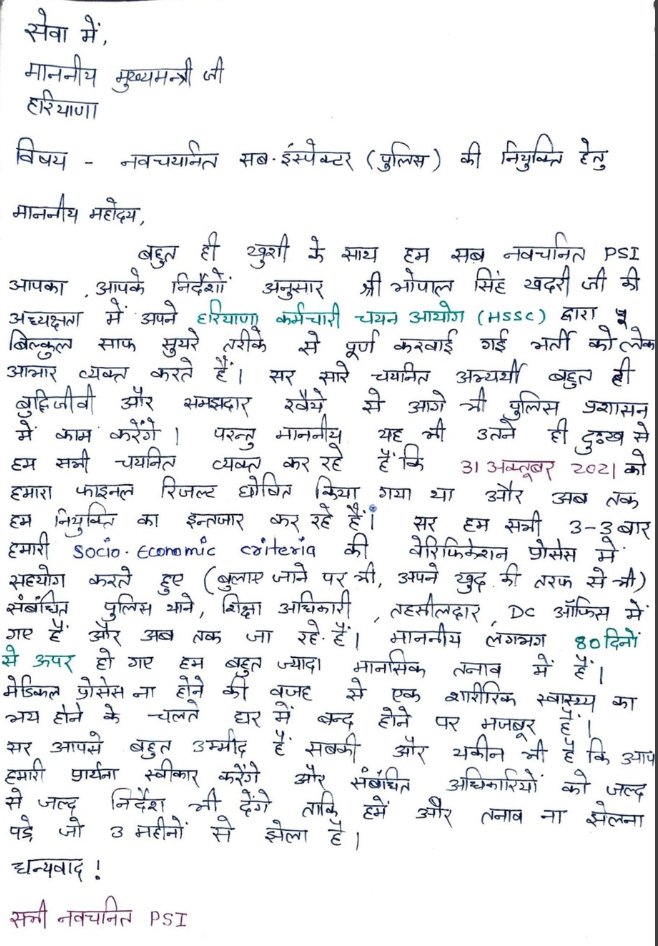 सेवा में,
माननीय मुख्यमन्त्री जी
हरियाणा
विषय - नवचयनित सब-इंस्पेक्टर (पुलिस) की नियुक्ति हेतु
माननीय महोदय,
बहुत ही खुशी के साथ हम सब नवचनित PSI
आपका, आपके निर्देशों अनुसार श्री भोपाल सिंह खदरी जी की
अध्यक्षता में अपने हरियाणा कर्मचारी चयन आयोग (HSSC) द्वारा
बिल्कुल साफ सुथरे तरीके से पूर्ण करवाई गई भर्ती को लेकर
आभार व्यक्त करते हैं। सर सारे चयनित अभ्यर्थी बहुत ही
बुद्धिजीवी और समझदार रवैये से आगे भी पुलिस प्रशासन
में काम करेंगे। परन्तु माननीय यह भी उतने ही दुःख से
हम सभी चयनित व्यक्त कर रहे हैं कि 31 अक्तूबर 2021 को
हमारा फाइनल रिजल्ट घोषित किया गया था और अब तक
हम नियुक्ति का इन्तजार कर रहे हैं। सर हम सभी 3-3 बार
हमारी Socio-Economic criteria की वेरिफिकेशन प्रोसेस में
सहयोग करते हुए (बुलाए जाने पर भी, अपने खुद की तरफ से भी)
संबंधित पुलिस थाने, शिक्षा अधिकारी, तहसीलदार, DC ऑफिस में
गए हैं और अब तक जा रहे हैं। माननीय लगभग 80 दिनों
से ऊपर हो गए हम बहुत ज्यादा मानसिक तनाव में हैं।
मेडिकल प्रोसेस ना होने की वजह से एक शारीरिक स्वास्थ्य का
भय होने के चलते घर में बन्द होने पर मजबूर हैं।
सर आपसे बहुत उम्मीद है सबकी और यकीन भी है कि आप
हमारी प्रार्थना स्वीकार करेंगे और संबंधित अधिकारियों को जल्द
से जल्द निर्देश भी देंगे ताकि हमें और तनाव ना झेलना
पड़े जो 3 महीनों से झेला है।
धन्यवाद !
सभी नवचनित PSI